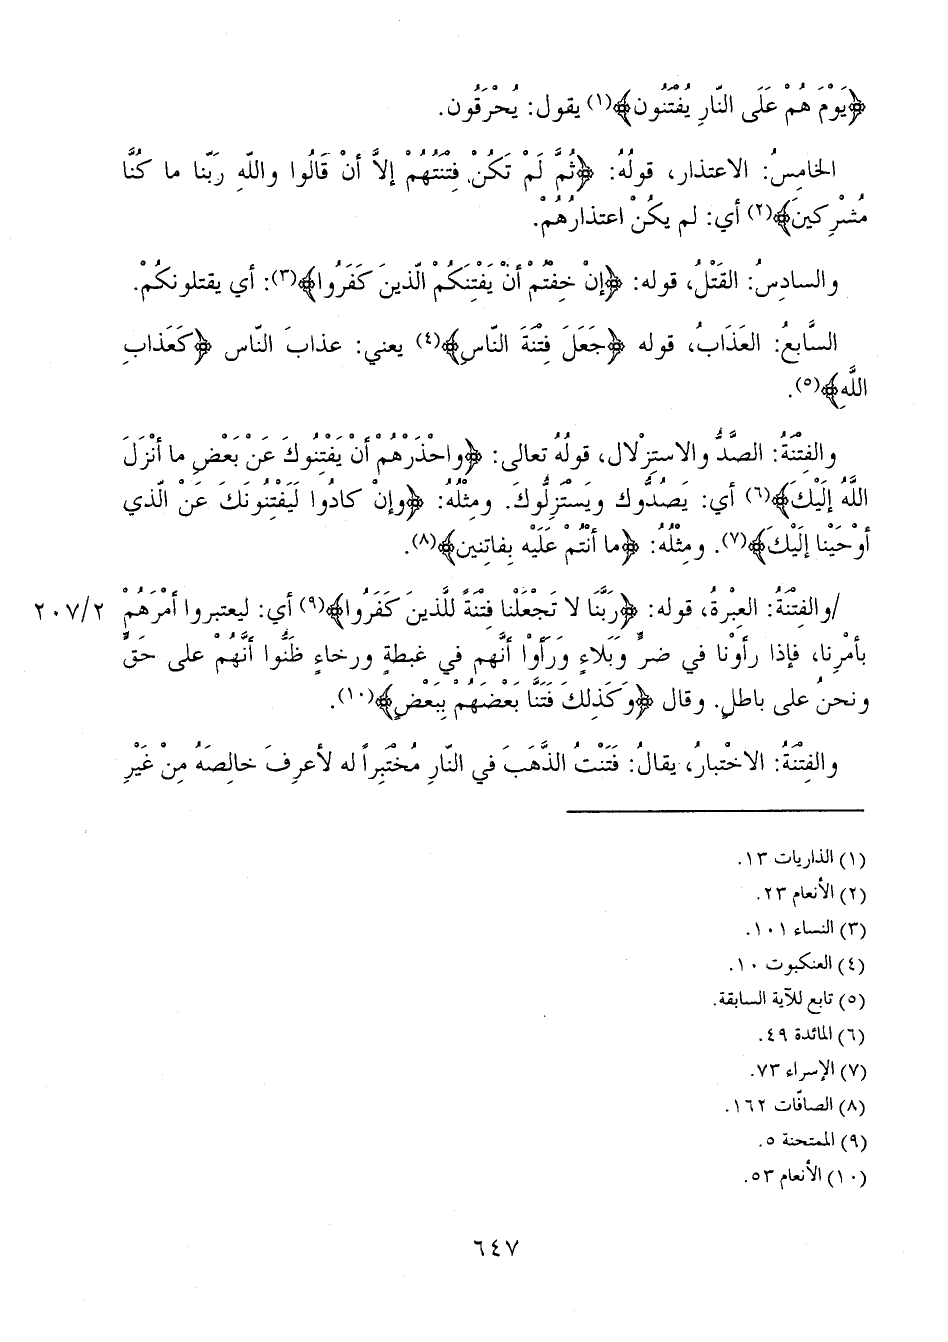 ﴿يَوْمَ هُمْ عَلَى النَّارِ يُفْتَنُون﴾(١) يقول: يُحْرَقُون.
الخامِسُ: الاعتذار، قولُهُ: ﴿ثُمَّ لَمْ تَكُنْ فِتْنَتُهُمْ إلاَّ أنْ قَالُوا واللهِ رَبّنا ما كُنَّا
مُشْرِكينَ﴾(٢) أي: لم يكُنْ اعتذارُهُمْ.
والسادِسُ: القَتْلُ، قوله: ﴿إنْ خِفْتُمْ أنْ يَفْتِنَكُمْ الّذينَ كَفَرُوا﴾(٣): أي يقتلونكُمْ.
السَّابِعُ: العَذَابُ، قوله ﴿جَعَلَ فِتْنَةَ النّاسِ﴾(٤) يعني: عذابَ النّاس ﴿كَعَذَابِ
اللَّهِ﴾(٥).
والفِتْنَةُ: الصَّدُّ والاستِزْلال، قولُهُ تعالى: ﴿واحْذَرْهُمْ أنْ يَفْتِنُوكَ عَنْ بَعْضِ ما أنْزَلَ
اللَّهُ إلَيْكَ﴾(٦) أي: يَصُدُّوك ويَسْتَزِلُّوكَ. ومِثْلُهُ: ﴿وإنْ كادُوا لَيَفْتِنُونَكَ عَنْ الّذي
أوْحَيْنا إلَيْكَ﴾(٧). ومِثلُهُ: ﴿ما أنْتُمْ عَلَيْه بِفاتنين﴾(٨).
/والفِتنَةُ: العِبْرةُ، قوله: ﴿رَبَّنَا لا تَجْعَلْنا فِتْنَةً للَّذينَ كَفَرُوا﴾(٩) أي: ليعتبروا أمْرَهُمْ ٢٠٧/٢
بأمْرِنا، فإذا رأوْنا في ضرٍّ وبَلاءٍ ورَأوْا أنَّهم في غبطةٍ ورخاءٍ ظَنُّوا أنَّهُمْ على حَقٍّ
ونحنُ على باطلٍ. وقال ﴿وكَذلِكَ فَتَنَّا بَعْضَهُمْ بِبَعْضٍ﴾(١٠).
والفِتْنَةُ: الاخْتبارُ، يقالُ: فَتَنْتُ الذَّهَبَ في النّارِ مُخْتَبِراً له لأعرِفَ خالِصَهُ مِنْ غَيْرِ
(١) الذاريات ١٣.
(٢) الأنعام ٢٣.
(٣) النساء ١٠١.
(٤) العنكبوت ١٠.
(٥) تابع للآية السابقة.
(٦) المائدة ٤٩.
(٧) الإسراء ٧٣.
(٨) الصافّات ١٦٢.
(٩) الممتحنة ٥.
(١٠) الأنعام ٥٣.
٦٤٧